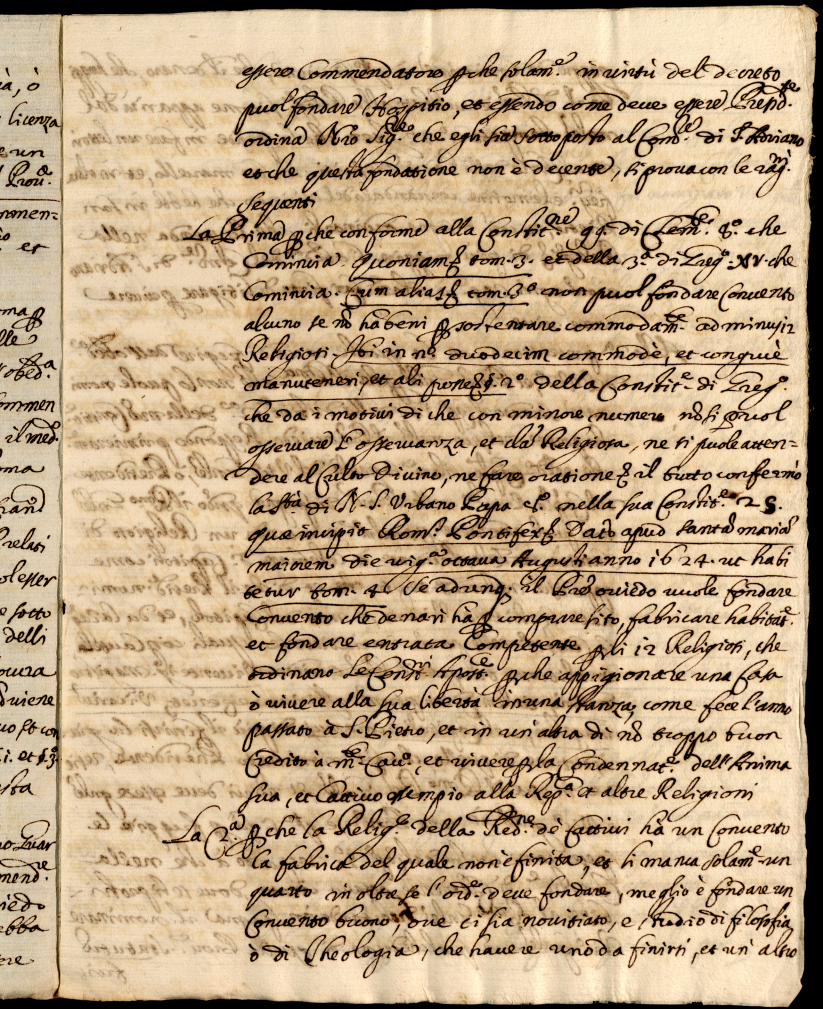 à, ò
licenza
e un
Prou.ᵉ
nmen=
et
lle
obed.ᵃ
ommen
il med.
ma
relati
ol esser
e sotto
delli
cura
viene
i. et §.3.
sta
mend.ᵉ
iedo
ebba
ere
essere Commendatore ꝑche solam.ᵉ in uirtù del decreto
puol fondare Hospitio, et essendo come deue essere Presid.ᵗᵉ
ordina Nr̃o Sig.ʳᵉ che egli sia sottoposto al Com.ʳᵉ di S. Adriano
et che questa fondatione non è decente, si proua con le rag.ⁿⁱ
seguenti
La Prima ꝑche conforme alla Constit.ⁿᵉ 99. di Clem.ᵗᵉ 8.º che
Comincia. Quoniam &. tom. 3. et della 3.ª di Greg.º XV. che
Comincia. Cum alias &. tom. 3º non puol fondare Conuento
alcuno se nõ ha beni ꝑ sostentare commodam.ᵗᵉ ad minus 12
Religiosi. Ibi in n.º duodecim commodè, et congruè
manuteneri, et ali posse &. §. 2º della Constit.ᵉ di Greg.º
che da i motiui di che con minore numero nõ si puol
osseruare l'osseruanza, et uita Religiosa, ne si puole atten=
dere al Culto Diuino, ne fare oratione &. il tutto confermò
la S.tà di N. S. Urbano Papa 8.º nella sua Constit.ᵉ 25.
quæ incipit Rom.ˢ Pontifex &. Dat̃ apud Santã mariã
maiorem die uig.ᵃ octaua Augusti anno 1624. ut habe
tur tom. 4. Se adunq; il Pr̃e ouiedo uuole fondare
Conuento che denari ha ꝑ comprare sito, fabricare habitat.ᵉ
et fondare entrata Competente ꝑ li 12 Religiosi, che
ordinano le Constⁿⁱ Apost.ᶜᵉ ꝑche appigionare una Casa
ò uiuere alla sua libertà in una stanza, come fece l'anno
passato à S. Pietro, et in un'altra di nõ troppo buon
Credito à m.ᵗᵉ Cau.º, et uiuere ꝑ la Condennat.ᵉ dell'Anima
sua, et Cattiuo essempio alla Rep.ᶜᵃ et altre Religioni
La 2.ª ꝑche la Relig.ᵉ della Red.ⁿᵉ de Cattiui hà un Conuento
la fabrica del quale non è finita, et li manca solam.ᵉ un
quarto in oltre se l'ord.ᵉ deue fondare, meglio è fondare un
Conuento buono, oue ci sia nouitiato, e studio di filosofia,
ò di Theologia, che hauere uno da finirsi, et un altro